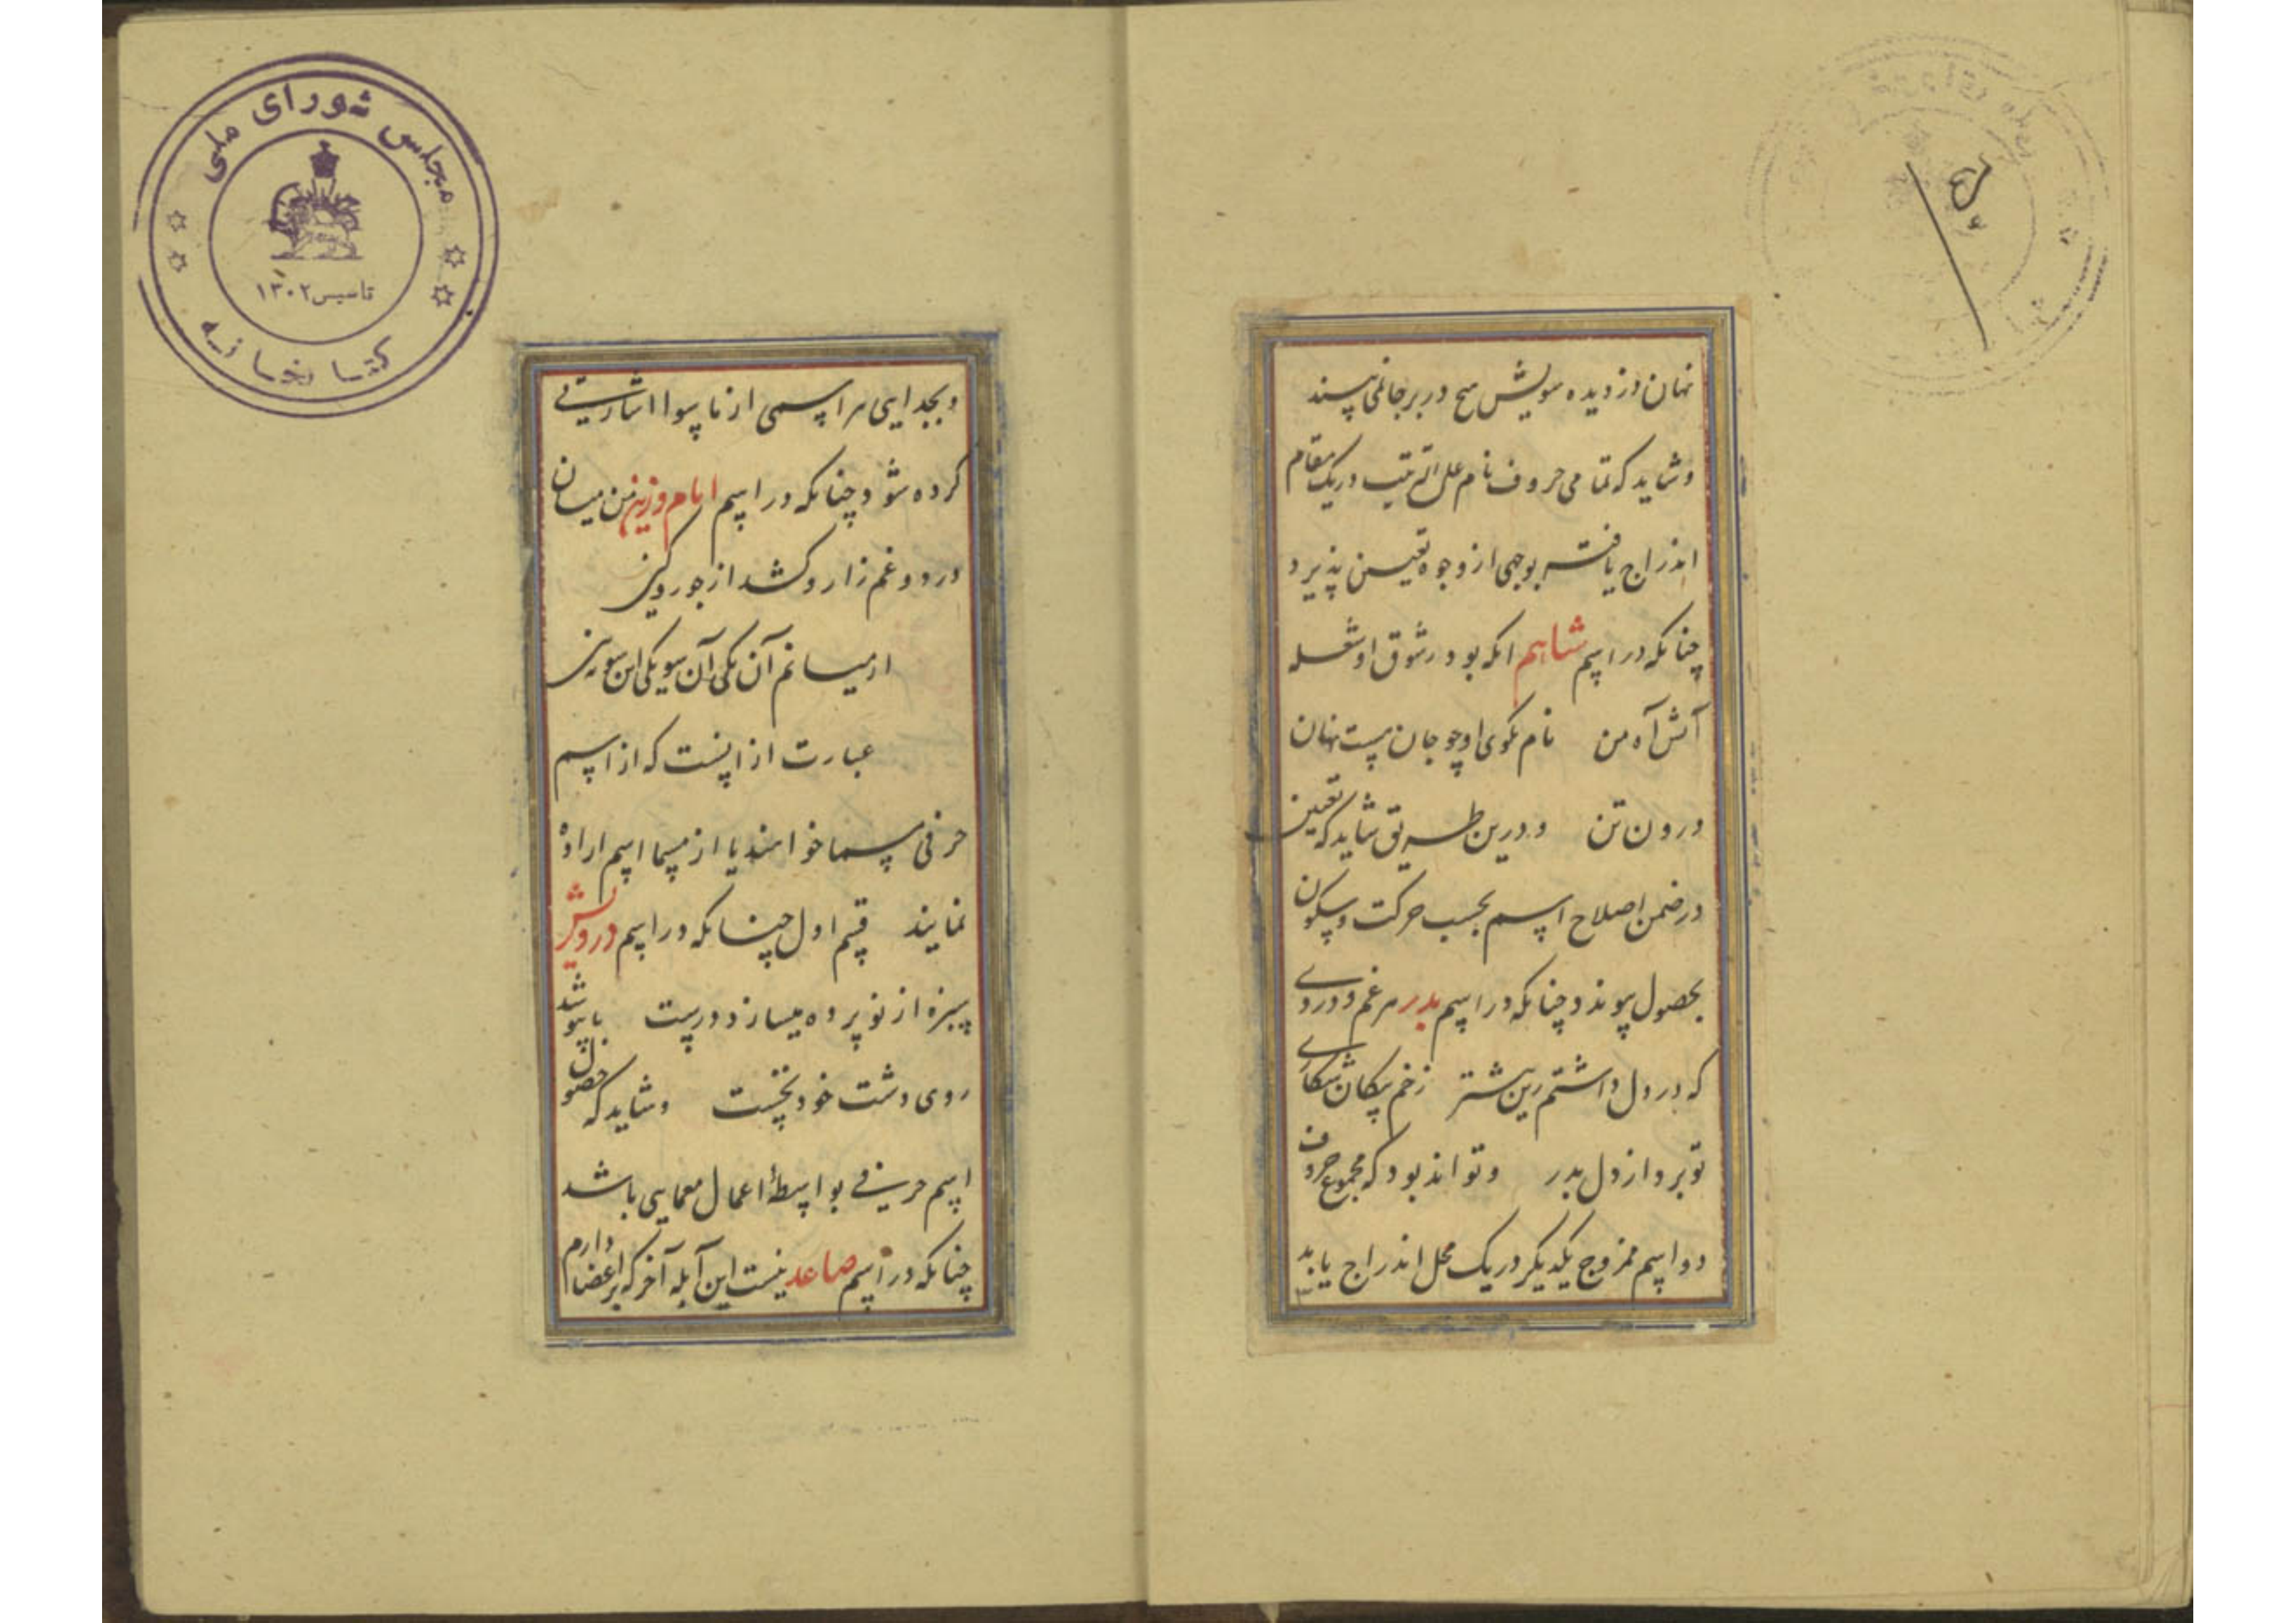 نهان دزدیده سویش هیچ در برجا نمی پسند
و شاید که تمامی حروف نام علی الترتیب در یک مقام
اندراج یافته بوجهی از وجوه تعیین پذیرد
چنانکه در اسم شاهم انکه بود در شوق او شعله
آتش آه من نام نکوی او چو جان هست نهان
درون تن و درین طریق شاید که تعیین
در ضمن اصلاح اسم بحسب حرکت و سکون
بحصول پیوندد چنانکه در اسم بدر هر غم و دردی
که در دل داشتم زین بیشتر زخم پیکان شکاری
تو برد از دل بدر و تواند بود که مجموع حروف
دو اسم ممزوج یکدیگر در یک محل اندراج یابد
و بجدایی هر اسمی از ماسوا اشارتی
کرده شود چنانکه در اسم امام و زین من میان
درد و غم زار و کشد از جور و کین
از میانم آن یکی آن سو یکی این سو
عبارت از اینست که از اسم
حرفی مسما خواهند یا از مسما اسم اراده
نمایند قسم اول چنانکه در اسم درویش
سبزه از نو پرده میسازد درست تا بپوشد
روی دشت خود نخست و شاید که حصول
اسم حرفی بواسطهٔ اعمال معمایی باشد
چنانکه در اسم صاعد نیست این آبله آخر که بر اعضا دارم
مجلس شورای ملی
تاسیس ۱۳۰۲
کتابخانه